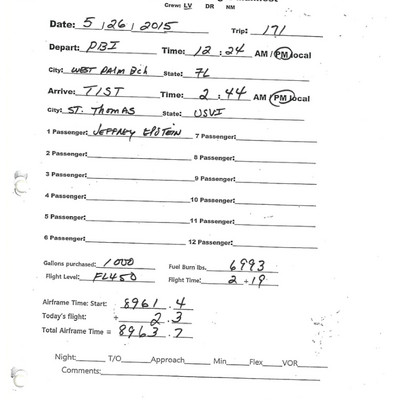 Crew: LV DR NM
Date: 5 / 26 / 2015 Trip: 171
Depart: PBI Time: 12 : 24 AM / PM local
City: WEST PALM BCH State: FL
Arrive: TIST Time: 2 : 44 AM / PM local
City: ST. THOMAS State: USVI
1 Passenger: JEFFREY EPSTEIN 7 Passenger:
2 Passenger: 8 Passenger:
3 Passenger: 9 Passenger:
4 Passenger: 10 Passenger:
5 Passenger: 11 Passenger:
6 Passenger: 12 Passenger:
Gallons purchased: 1000 Fuel Burn lbs. 6993
Flight Level: FL450 Flight Time: 2 + 19
Airframe Time: Start: 8961 . 4
Today's flight: + 2 . 3
Total Airframe Time = 8963 . 7
Night: T/O Approach Min Flex VOR
Comments: